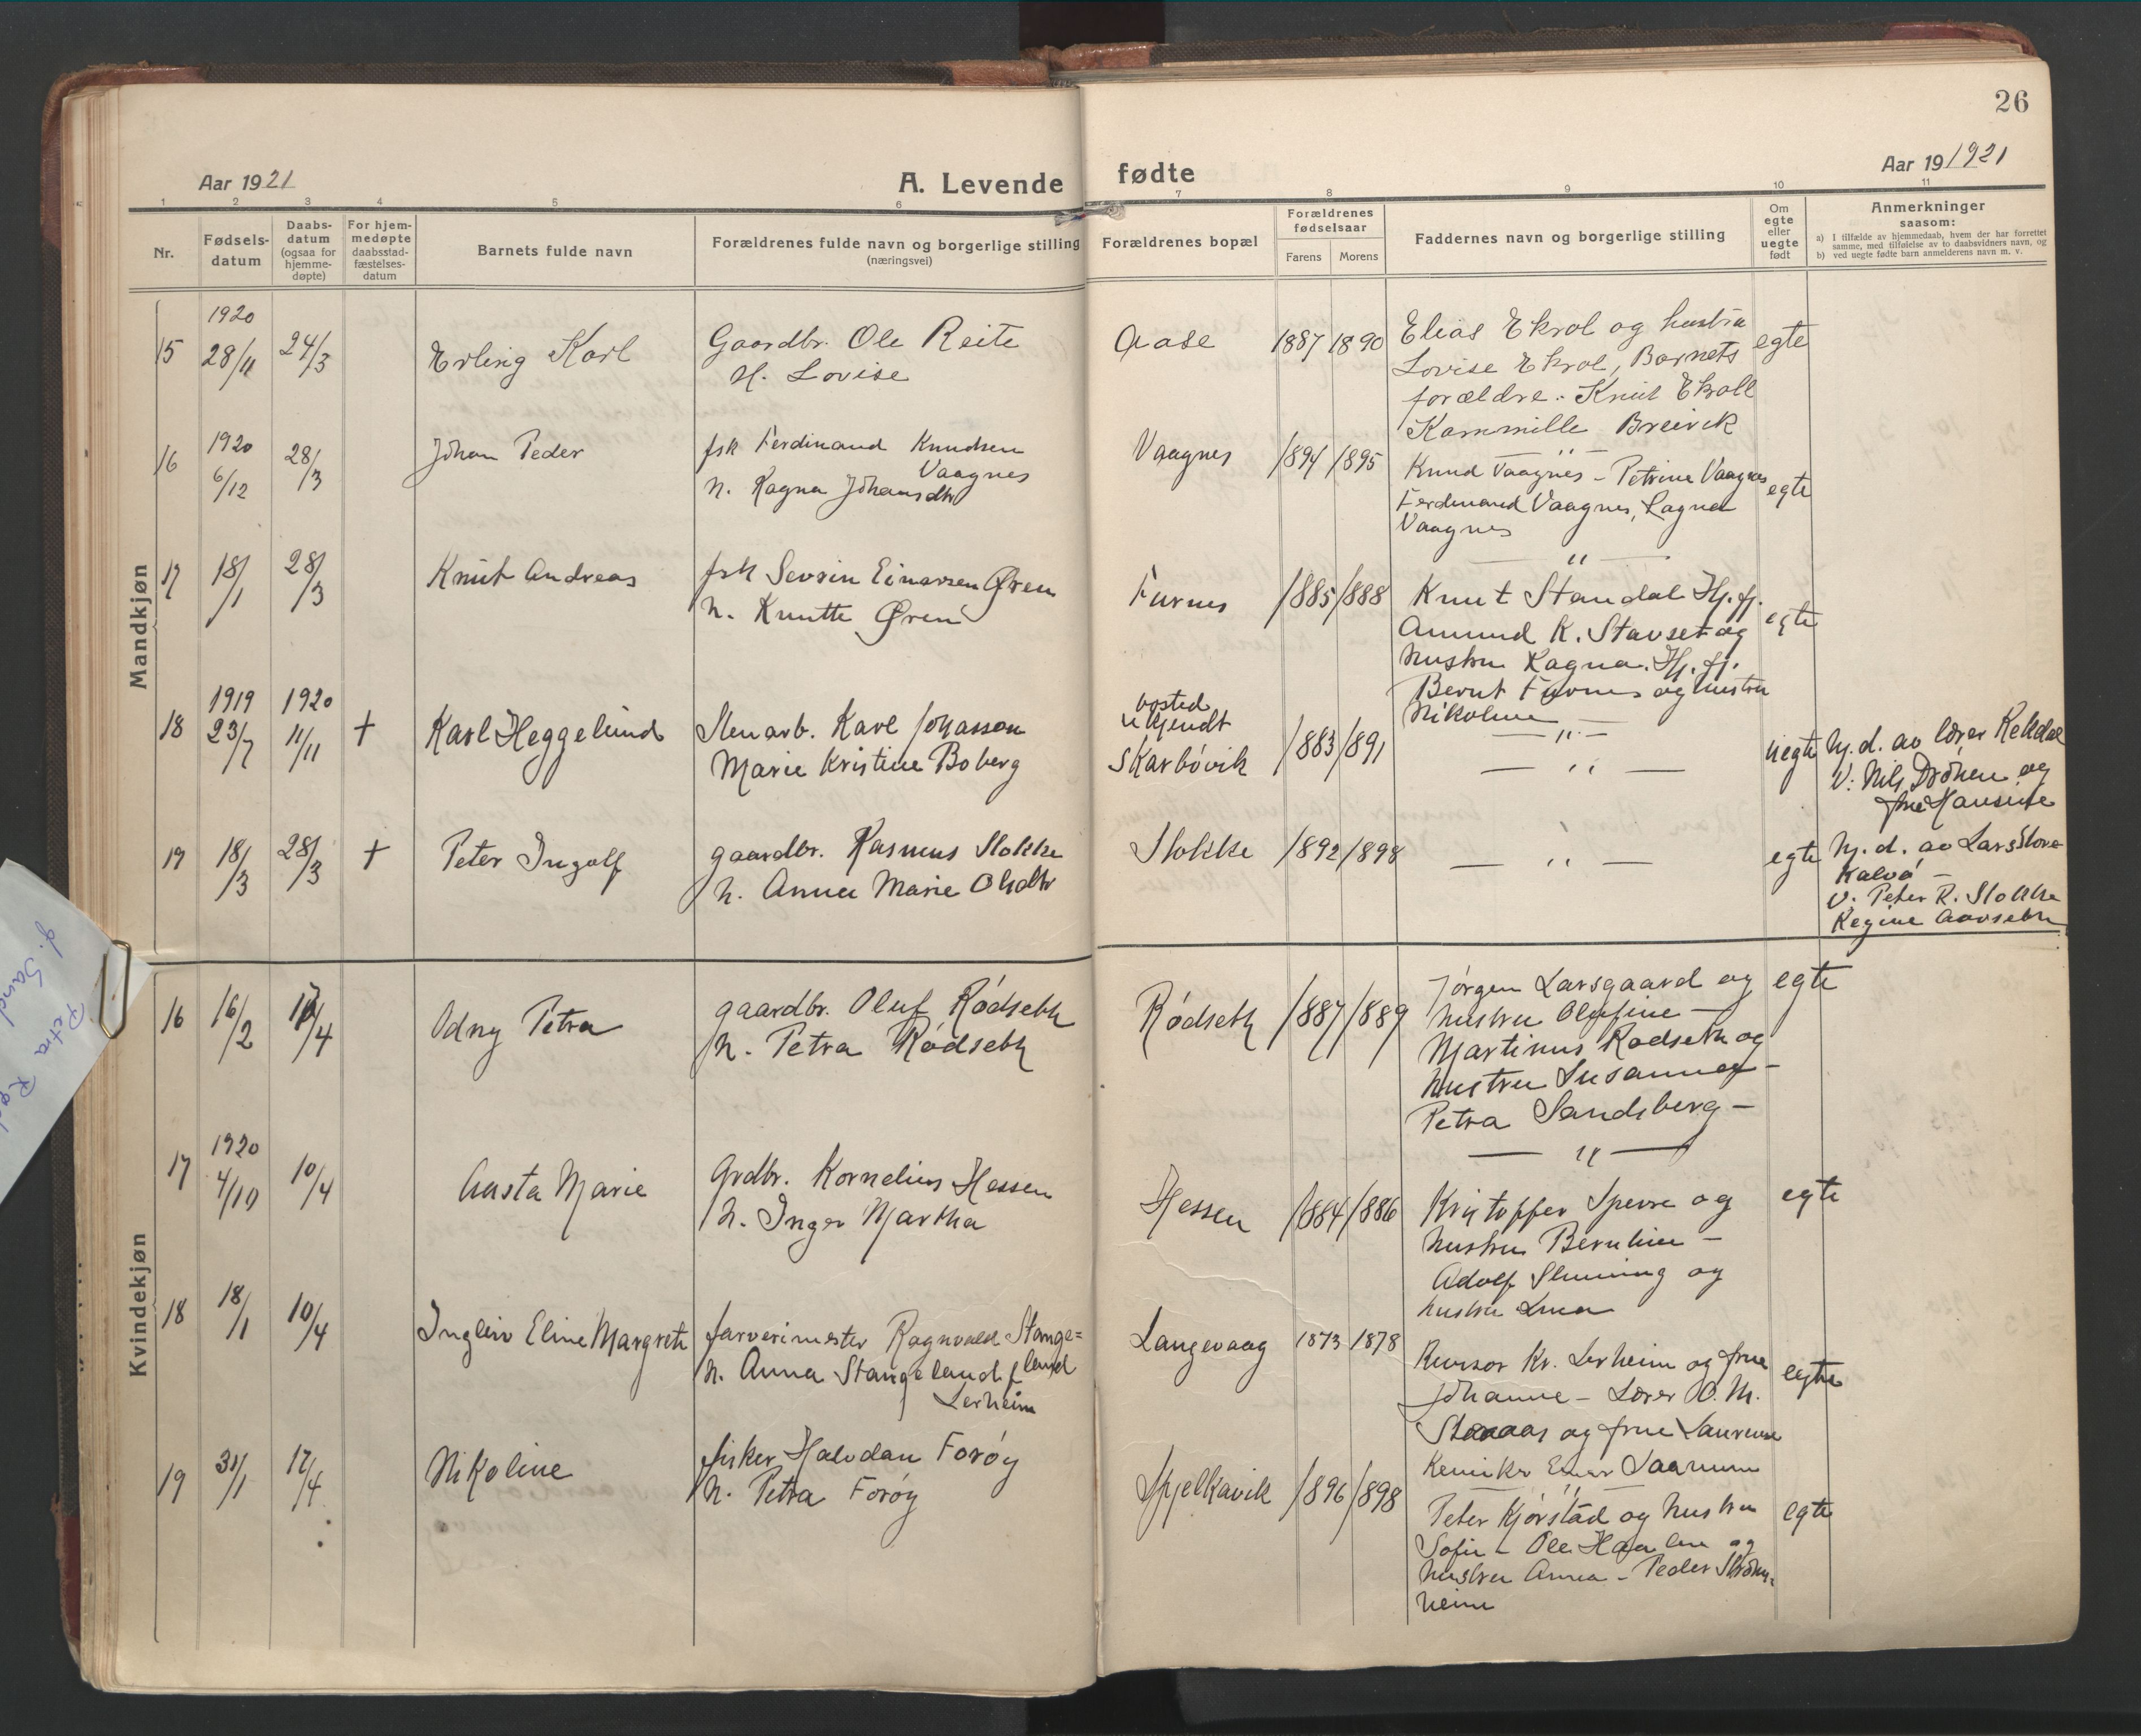 26
Aar 1921
A. Levende fødte
Aar 19 1921
1 2 3 4 5 6 7 8 9 10 11
Nr.
Fødsels-
datum
Daabs-
datum
(ogsaa for
hjemme-
døpte)
For hjem-
medøpte
daabsstad-
fæstelses-
datum
Barnets fulde navn
Forældrenes fulde navn og borgerlige stilling
(næringsvei)
Forældrenes bopæl
Forældrenes
fødselsaar
Farens Morens
Faddernes navn og borgerlige stilling
Om
egte
eller
uegte
født
Anmerkninger
saasom:
a) I tilfælde av hjemmedaab, hvem der har forrettet
samme, med tilføielse av to daabsvidners navn, og
b) ved uegte fødte barn anmelderens navn m. v.
Mandkjøn
15 1920 28/11 24/3 Erling Karl
Gaardbr. Ole Reite
H. Lovise
Aase 1887 1890
Elias Ekrol og hustru
Lovise Ekrol, Barnets
forældre. Knut Ekroll
Kammille Breivik
egte
16 1920 6/12 28/3 Johan Peder
fsk Ferdinand Knudsen
Vaagnes
h. Ragna Johansdtr
Vaagnes 1894 1895
— " —
Knud Vaagnes - Petrine Vaagnes
Ferdinand Vaagnes, Ragna
Vaagnes
egte
17 18/1 28/3 Knut Andreas
fsk Sevrin Einarsen Øren
h. Knutte Øren
Furnes 1885 1888
— " —
Knut Standal Hj.fj.
Amund K. Stavset og
hustru Ragna. Hj.fj.
Bernt Furnes og hustru
Nikoline —
egte
18 1919 23/7 1920 11/11 + Karl Heggelund
Stenarb. Karl Johasson
Marie Kristine Boberg
bosted
ukjendt
Skarbövik 1883 1891
— " —
— " —
uegte
hj.d. av lærer Rekdal
V: Nils Drönen og
frue Hansine
19 18/3 28/3 + Peter Ingolf
gaardbr. Rasmus Slokke
h. Anna Marie Olsdtr
Slokke 1892 1898
— " —
egte
hj.d. av Lars Store
Kalvö —
V. Peter R. Slokke
Regine Aarseth
Kvindekjøn
16 16/2 10/4 Odny Petra
gaardbr. Oluf Rödseth
h. Petra Rödseth
Rödseth 1887 1889
Jörgen Larsgaard og
hustru Olufine —
Martinus Rödseth og
hustru Susanna —
Petra Sandsberg —
egte
17 1920 4/10 10/4 Aasta Marie
Grdbr. Kornelius Hessen
h. Inger Martha
Hessen 1884 1886
— " —
Kristoffer Sperre og
hustru Bernhine —
Adolf Slinning og
hustru
egte
18 18/1 10/4 Ingleiv Eline Margrete
farverimester Ragnvald Stange=
land
h. Anna Stangeland f
Lerheim
Langevaag 1873 1878
Revisor Kr. Lerheim og frue
Johanne — Lærer O. M.
og frue Laurense
Kemiker Einar Saanum
egte
19 31/1 17/4 Nikoline
fisker Halvdan Foröy
h. Petra Foröy
Spjelkavik 1896 1898
— " —
Peter Kjörstad og hustru
Sofie — Ole og
hustru Anna — Peder Ström-
heim
egte
Petra